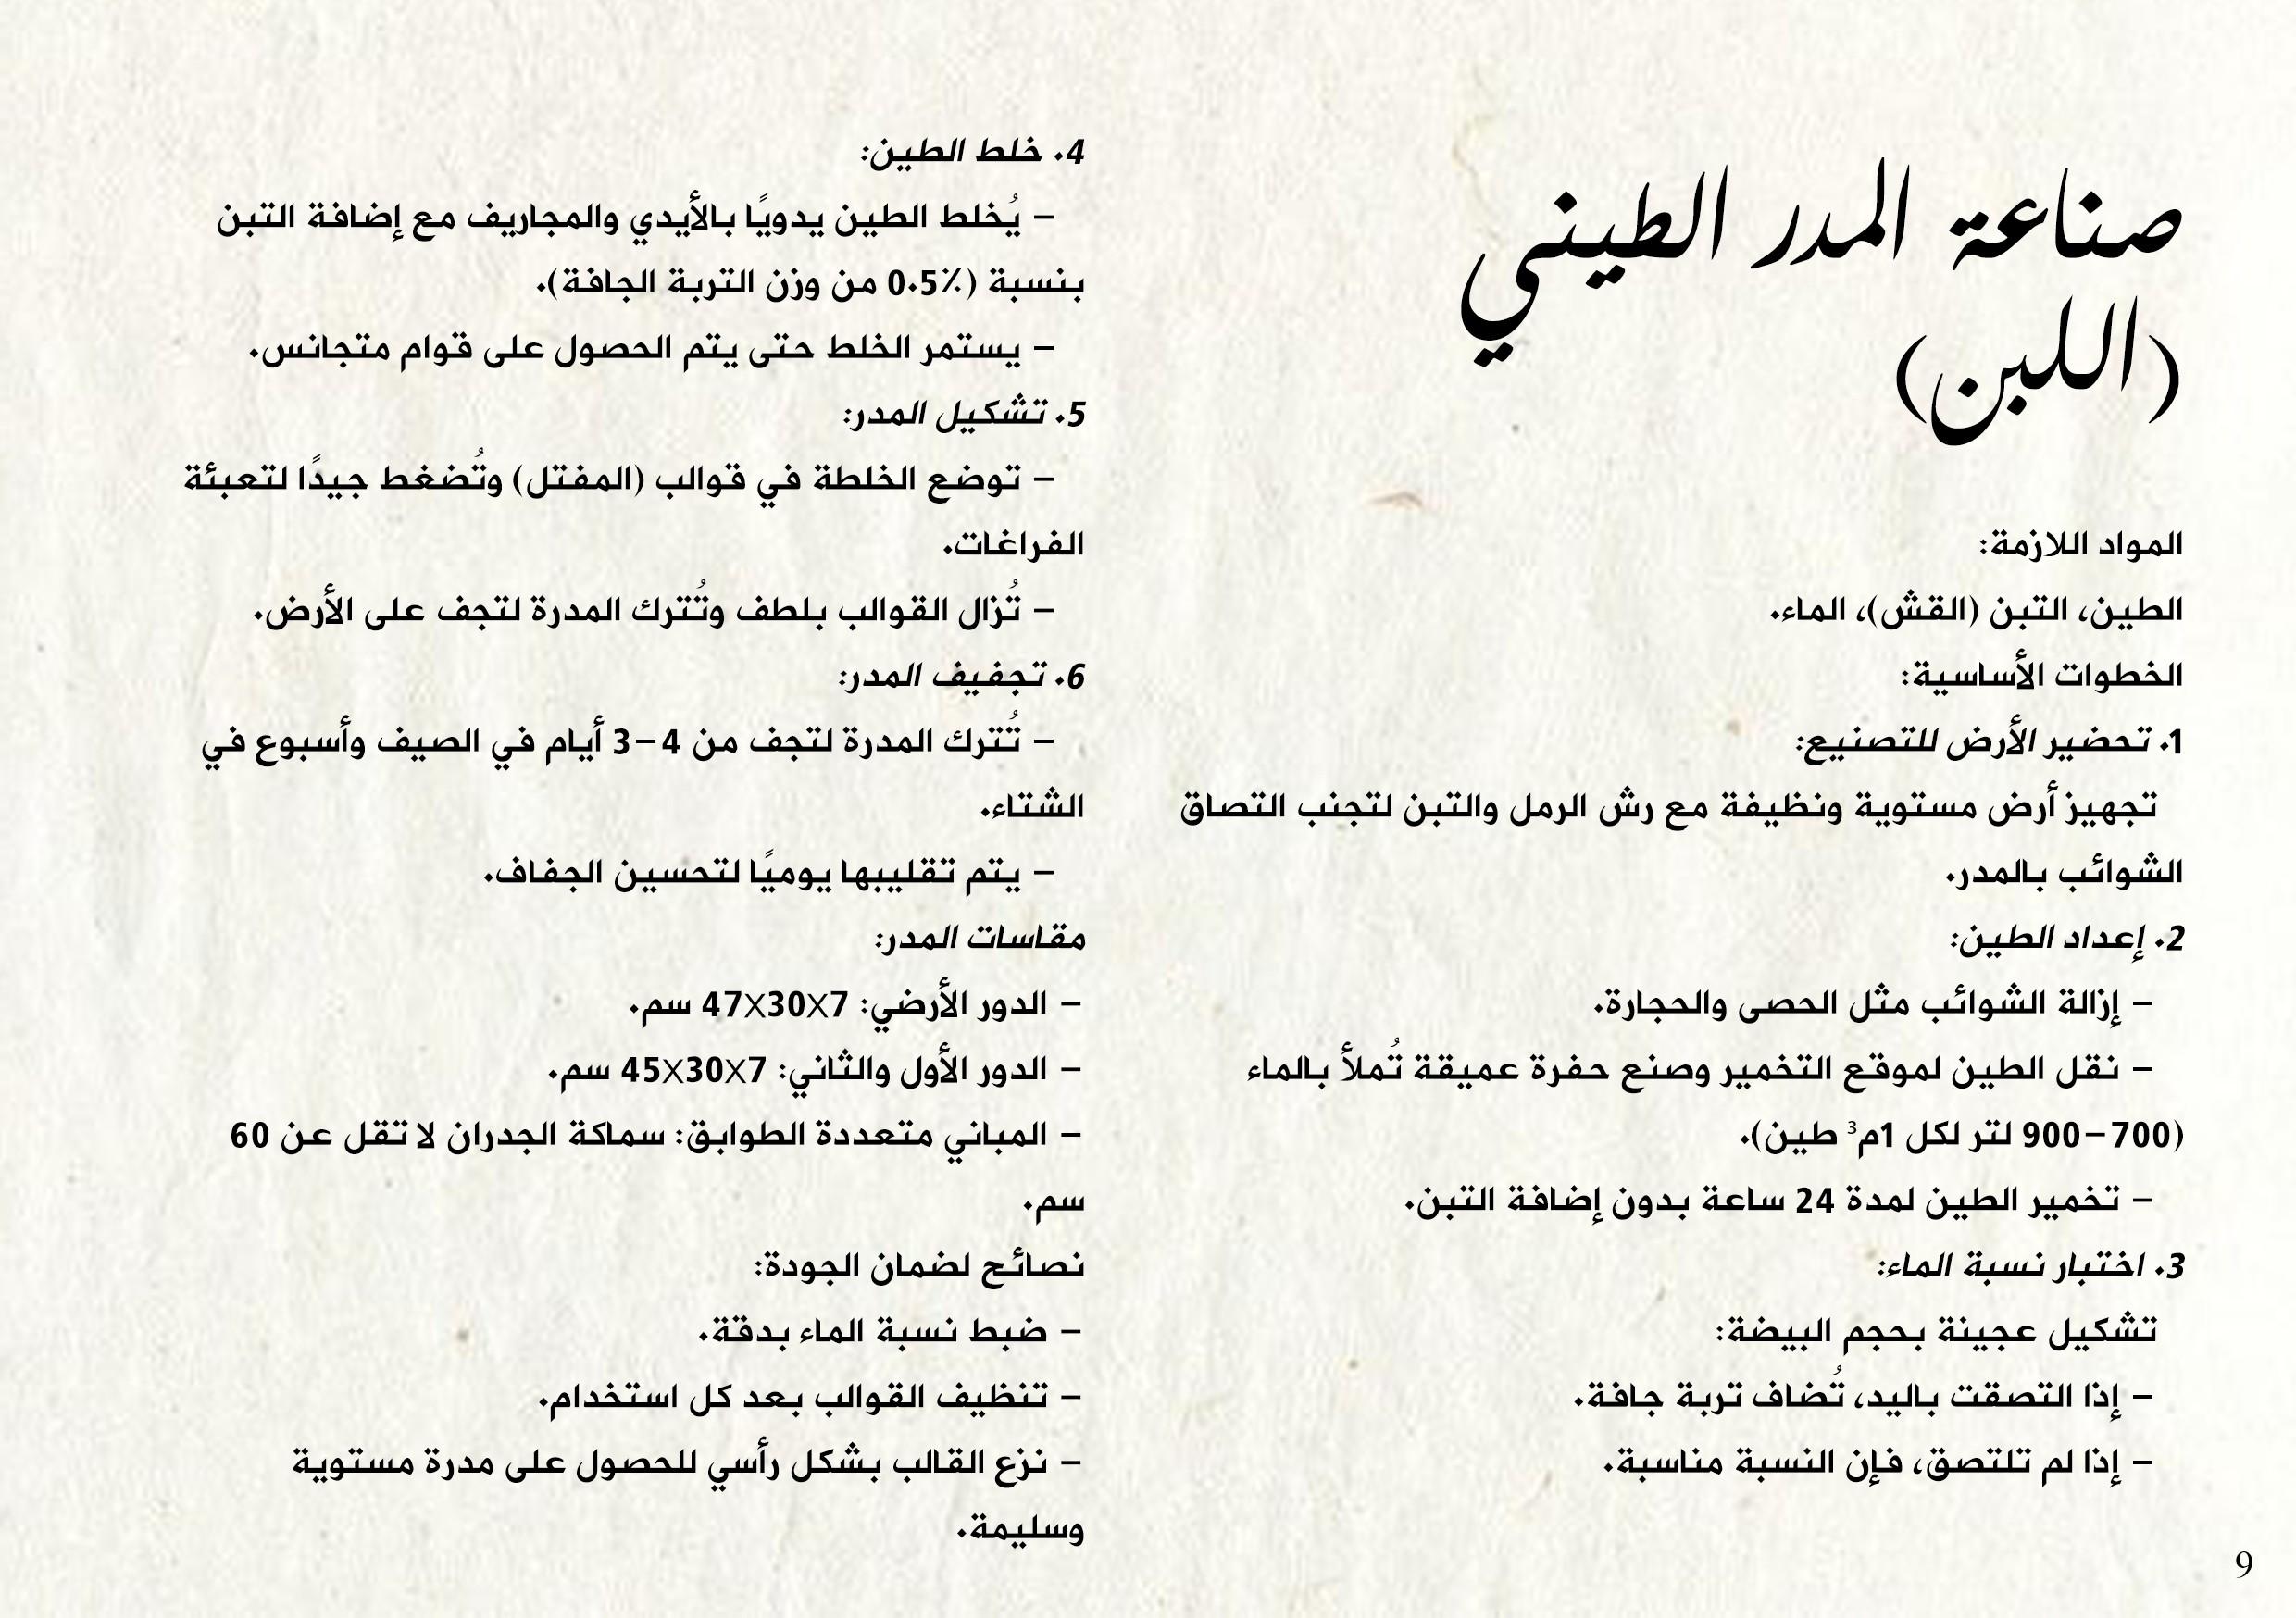 صناعة المدر الطيني
(اللبن)
المواد اللازمة:
الطين، التبن (القش)، الماء.
الخطوات الأساسية:
1. تحضير الأرض للتصنيع:
تجهيز أرض مستوية ونظيفة مع رش الرمل والتبن لتجنب التصاق
الشوائب بالمدر.
2. إعداد الطين:
– إزالة الشوائب مثل الحصى والحجارة.
– نقل الطين لموقع التخمير وصنع حفرة عميقة تُملأ بالماء
(700–900 لتر لكل 1م³ طين).
– تخمير الطين لمدة 24 ساعة بدون إضافة التبن.
3. اختبار نسبة الماء:
تشكيل عجينة بحجم البيضة:
– إذا التصقت باليد، تُضاف تربة جافة.
– إذا لم تلتصق، فإن النسبة مناسبة.
4. خلط الطين:
– يُخلط الطين يدويًا بالأيدي والمجاريف مع إضافة التبن
بنسبة (0.5٪ من وزن التربة الجافة).
– يستمر الخلط حتى يتم الحصول على قوام متجانس.
5. تشكيل المدر:
– توضع الخلطة في قوالب (المفتل) وتُضغط جيدًا لتعبئة
الفراغات.
– تُزال القوالب بلطف وتُترك المدرة لتجف على الأرض.
6. تجفيف المدر:
– تُترك المدرة لتجف من 4–3 أيام في الصيف وأسبوع في
الشتاء.
– يتم تقليبها يوميًا لتحسين الجفاف.
مقاسات المدر:
– الدور الأرضي: 47X30X7 سم.
– الدور الأول والثاني: 45X30X7 سم.
– المباني متعددة الطوابق: سماكة الجدران لا تقل عن 60
سم.
نصائح لضمان الجودة:
– ضبط نسبة الماء بدقة.
– تنظيف القوالب بعد كل استخدام.
– نزع القالب بشكل رأسي للحصول على مدرة مستوية
وسليمة.
9